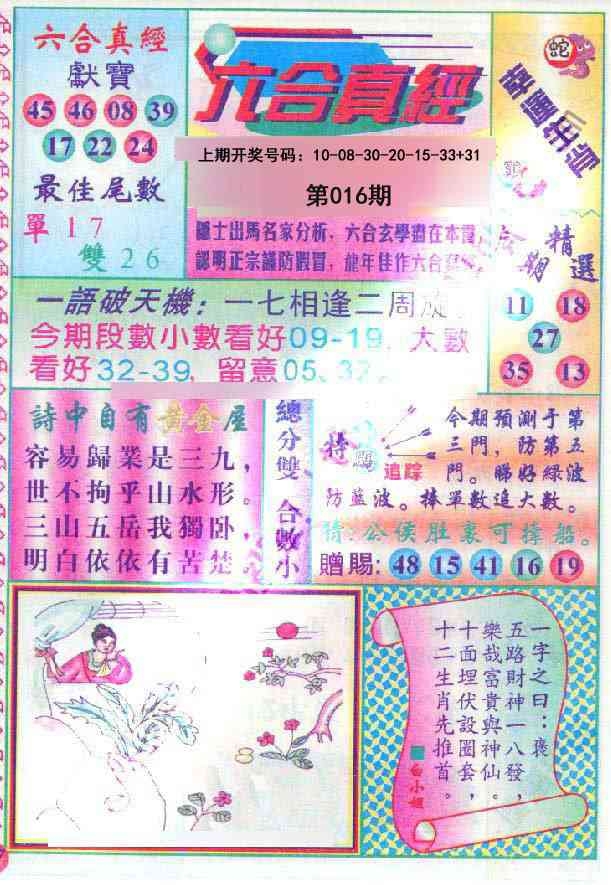 六合真經
獻寶
45 46 08 39
17 22 24
最佳尾數
單 1 7
雙 2 6
六合真經
上期开奖号码：10-08-30-20-15-33+31
第016期
隱士出馬名家分析、六合玄學盡在本
認明正宗謹防假冒，龍年佳作六合
蛇
期
精選
11 18
27
35 13
一語破天機：一七相逢二周
今期段數小數看好09-19、大數
看好32-39，留意05、37。
詩中自有黃金屋
容易歸業是三九，
世不拘乎山水形。
三山五岳我獨卧，
明白依依有苦楚。
總分雙 合數小
特碼
追踪
今期預測于第
三門，防第五
門。睇好綠波
防藍波。捧單數追大數。
猜：公侯肚裏可撐船。
贈賜：48 15 41 16 19
一字之曰：褒
五路財神一八發，
樂哉富貴與神仙。
十面埋伏設圈套，
十二生肖先推首。
白小姐